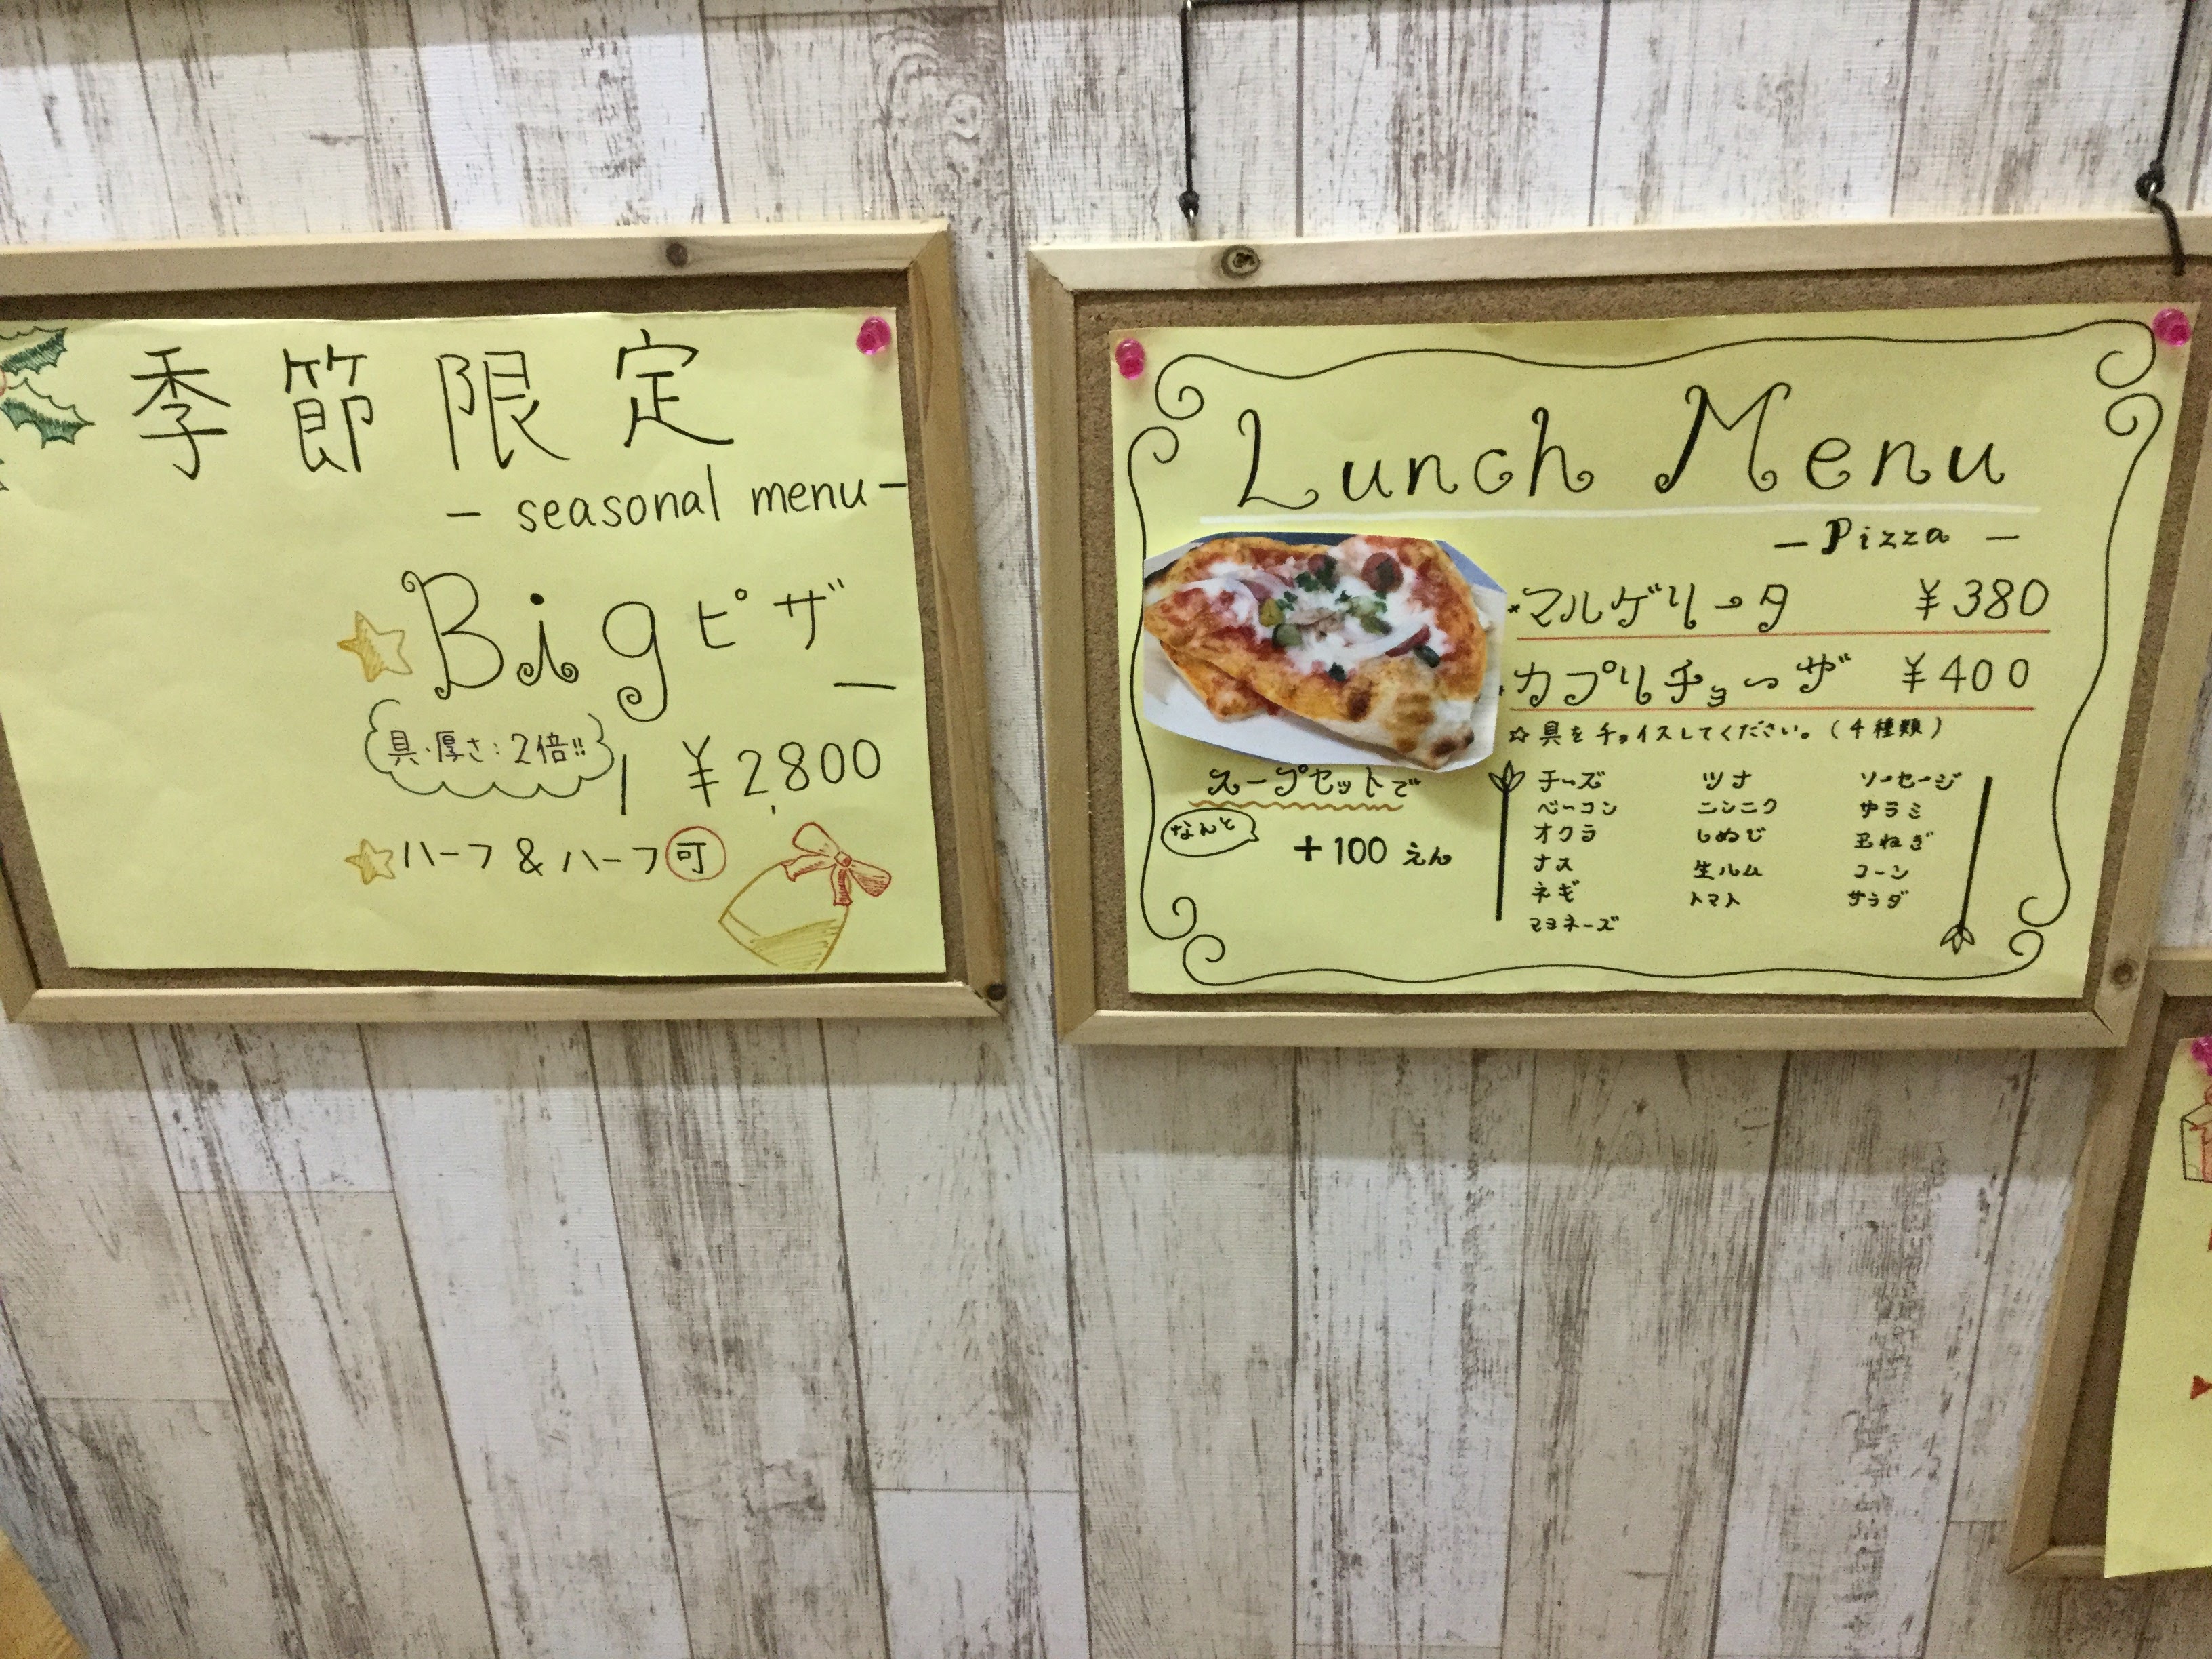 季節限定
- seasonal menu -
Bigピザ
具・厚さ:2倍!!
¥2,800
ハーフ&ハーフ 可
Lunch Menu
- Pizza -
マルゲリータ ¥380
カプリチョーザ ¥400
☆具をチョイスしてください。(4種類)
チーズ ツナ ソーセージ
ベーコン ニンニク サラミ
オクラ しめじ 玉ねぎ
ナス 生ハム コーン
ネギ トマト サラダ
マヨネーズ
スープセットで
なんと
+100えん